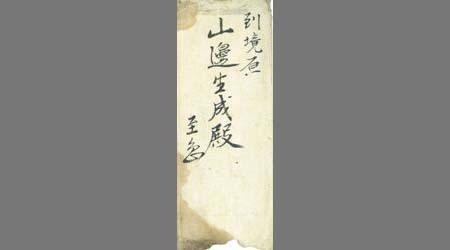 到境原
山邊生成殿
至急